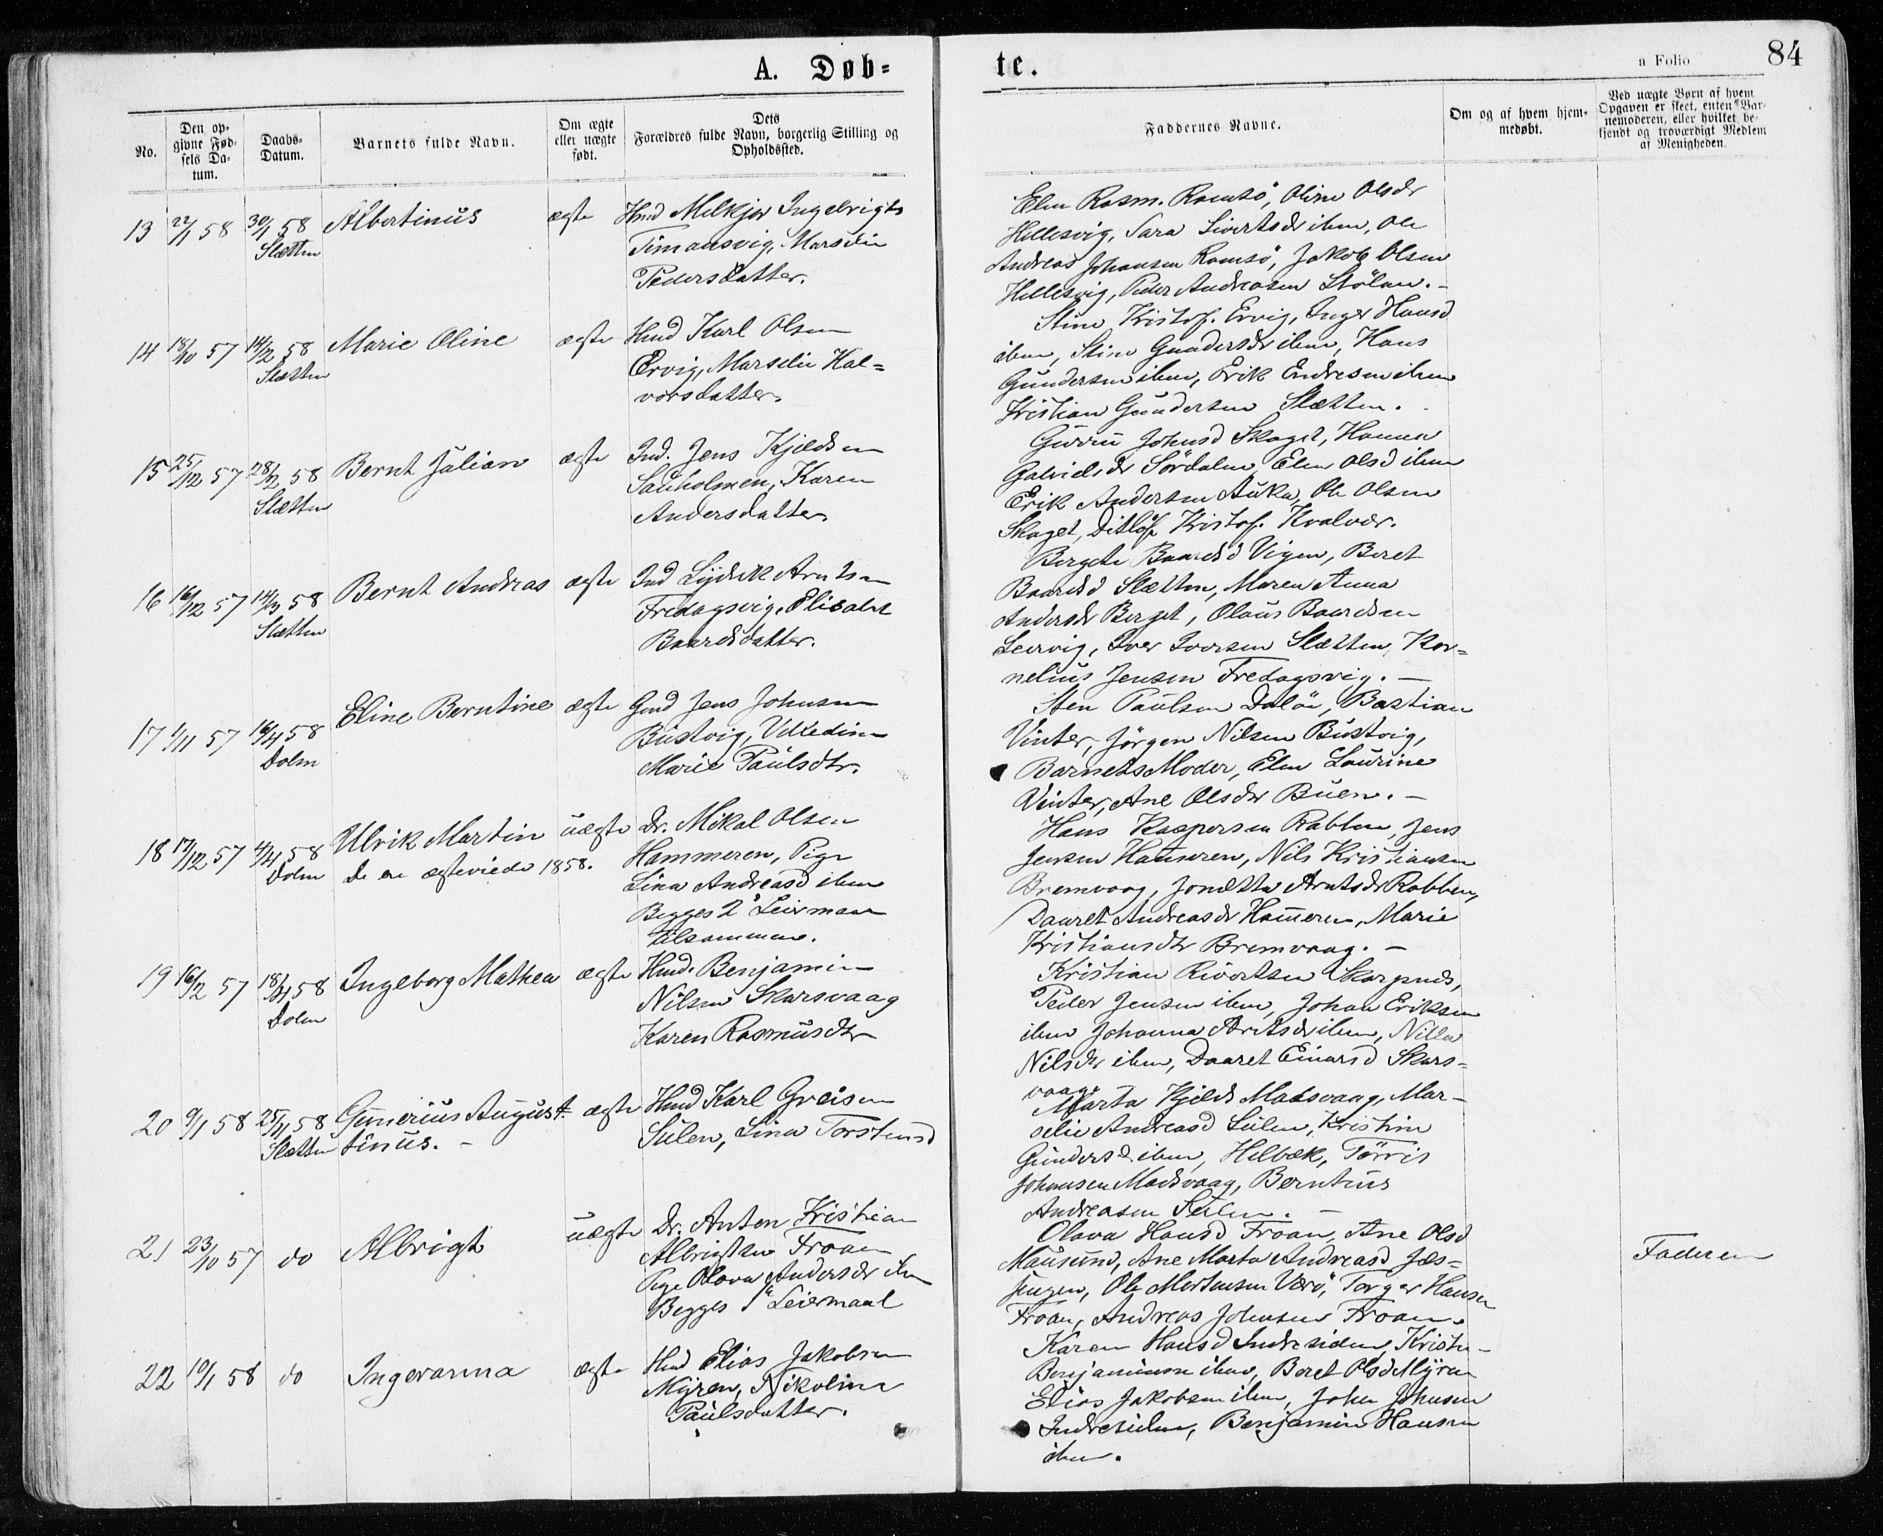 A. Døb=
te.
a Folio
84
No.
Den op-
givne Fød-
sels Da-
tum.
Daabs-
Datum.
Barnets fulde Navn.
Om ægte
eller uægte
født.
Dets
Forældres fulde Navn, borgerlig Stilling og
Opholdssted.
Faddernes Navne.
Om og af hvem hjem-
medøbt.
Ved uægte Børn af hvem
Opgaven er skeet, enten Bar-
nemoderen, eller hvilket be-
kjendt og troværdigt Medlem
af Menigheden.
13 22/1 58 30/1 58 Albertinus ægte Hmd Melkjor Ingebrigts
Slætten
Timansvig, Marselie
Pedersdatter.
Elen Rasm. Ramsö, Oline Olsdr
Hellesvig, Sara Sivertsdr ibm, Ole
Andreas Johansen Ramsö, Jakob Olsen
Hellesvig, Peder Andreasen Stölan. -
14 18/10 57 14/2 58 Marie Oline ægte Hmd Karl Olsen
Slætten
Ervig, Marselie Hal=
vorsdatter.
Stine Kristof. Ervig, Inger Hansd
ibm, Stine Gundersdr ibm, Hans
Gundersen ibm, Erik Endresen ibm
Kristian Gundersen Slætten.
15 25/12 57 28/2 58 Bernt Julian ægte Ind. Jens Kjeldsen
Slætten
Sauholmen, Karen
Andersdatter
Guru Johnsd Skaget, Hanna
Gabrielsdr Sördalen, Elen Olsd ibm
Erik Andersen Auka, Ole Olsen
Skaget, Ditlöf Kristof. Kvalvær.
16 16/12 57 14/3 58 Bernt Andreas ægte Ind Lyderk Arntsen
Slætten
Fredagsvig, Elisabet
Baardsdatter.
Bergete Baardsd Vigen, Beret
Baardsd Slætten, Maren Anna
Andersdr Berget, Olaus Baardsen
Leervig, Iver Iversen Slætten, Kor=
nelius Jensen Fredagsvig. -
17 1/11 57 16/4 58 Eline Berntine ægte Gmd Jens Johnsen
Dolm
Bustvig, Velledine
Marie Paulsdtr.
Sten Paulsen Dolöi, Bastian
Vinter, Jörgen Nilsen Bustvig,
Barnets Moder, Elen Laurine
Vinter, Ane Olsdr Buen. -
18 17/12 57 4/4 58 Ulrik Martin uægte Dr. Mikal Olsen
Dolm
De ere ægteviede 1858.
Hammeren, Pige
Lina Andreasd ibm
Begges 2 Leiermaal
tilsammen.
Hans Kaspersen Rabben, Jens
Jensen Hammeren, Nils Kristiansen
Bremvaag, Jonetta Arntsdr Rabben,
Daaret Andreasdr Hammeren, Marie
Kristiansdtr Bremvaag. -
19 16/2 57 18/4 58 Ingeborg Mathea ægte Hmd. Benjamin
Dolm
Nilsen Skarsvaag
Karen Rasmusdtr
Kristian Sivertsen Skarpnes,
Peder Jensen ibm, Johan Eriksen
ibm Johanna Arntsdr ibm, Nilla
Nilsdtr ibm, Daaret Einarsd Skars-
vaag.
20 9/1 58 25/4 58 Gunerius August- ægte Hmd Karl Greisen
Slætten tinus. -
Sulen, Lina Torstensd
Marta Kjelds Madsvaag, Mar-
selie Andreasd Sulen, Kristine
Gundersd ibm, Helbæk, Törris
Johansen Madsvaag, Berntinus
Andreasen Sulen. -
21 23/10 57 do Albrigt uægte Dr. Anton Kristian
Albrigtsen Froan
Pige Olava Andersdr ibm
Begges 1ste Leiermaal
Olava Hansd Froan, Ane Olsd
Mausund, Ane Marta Andreasd Jæs-
ungen, Ole Mortensen Værö, Torger Hansen
Froan, Andreas Johnsen Froan.
Faderen
22 10/1 58 do Ingeranna ægte Hmd Elias Jakobsen
Myren, Nikoline
Paulsdatter.
Karen Hansd Indresiden, Kriste-
Benjaminsen ibm, Beret Olsd Myren
Elias Jakobsen ibm, John Johnsen
Indresiden, Benjamin Hansen
ibm.